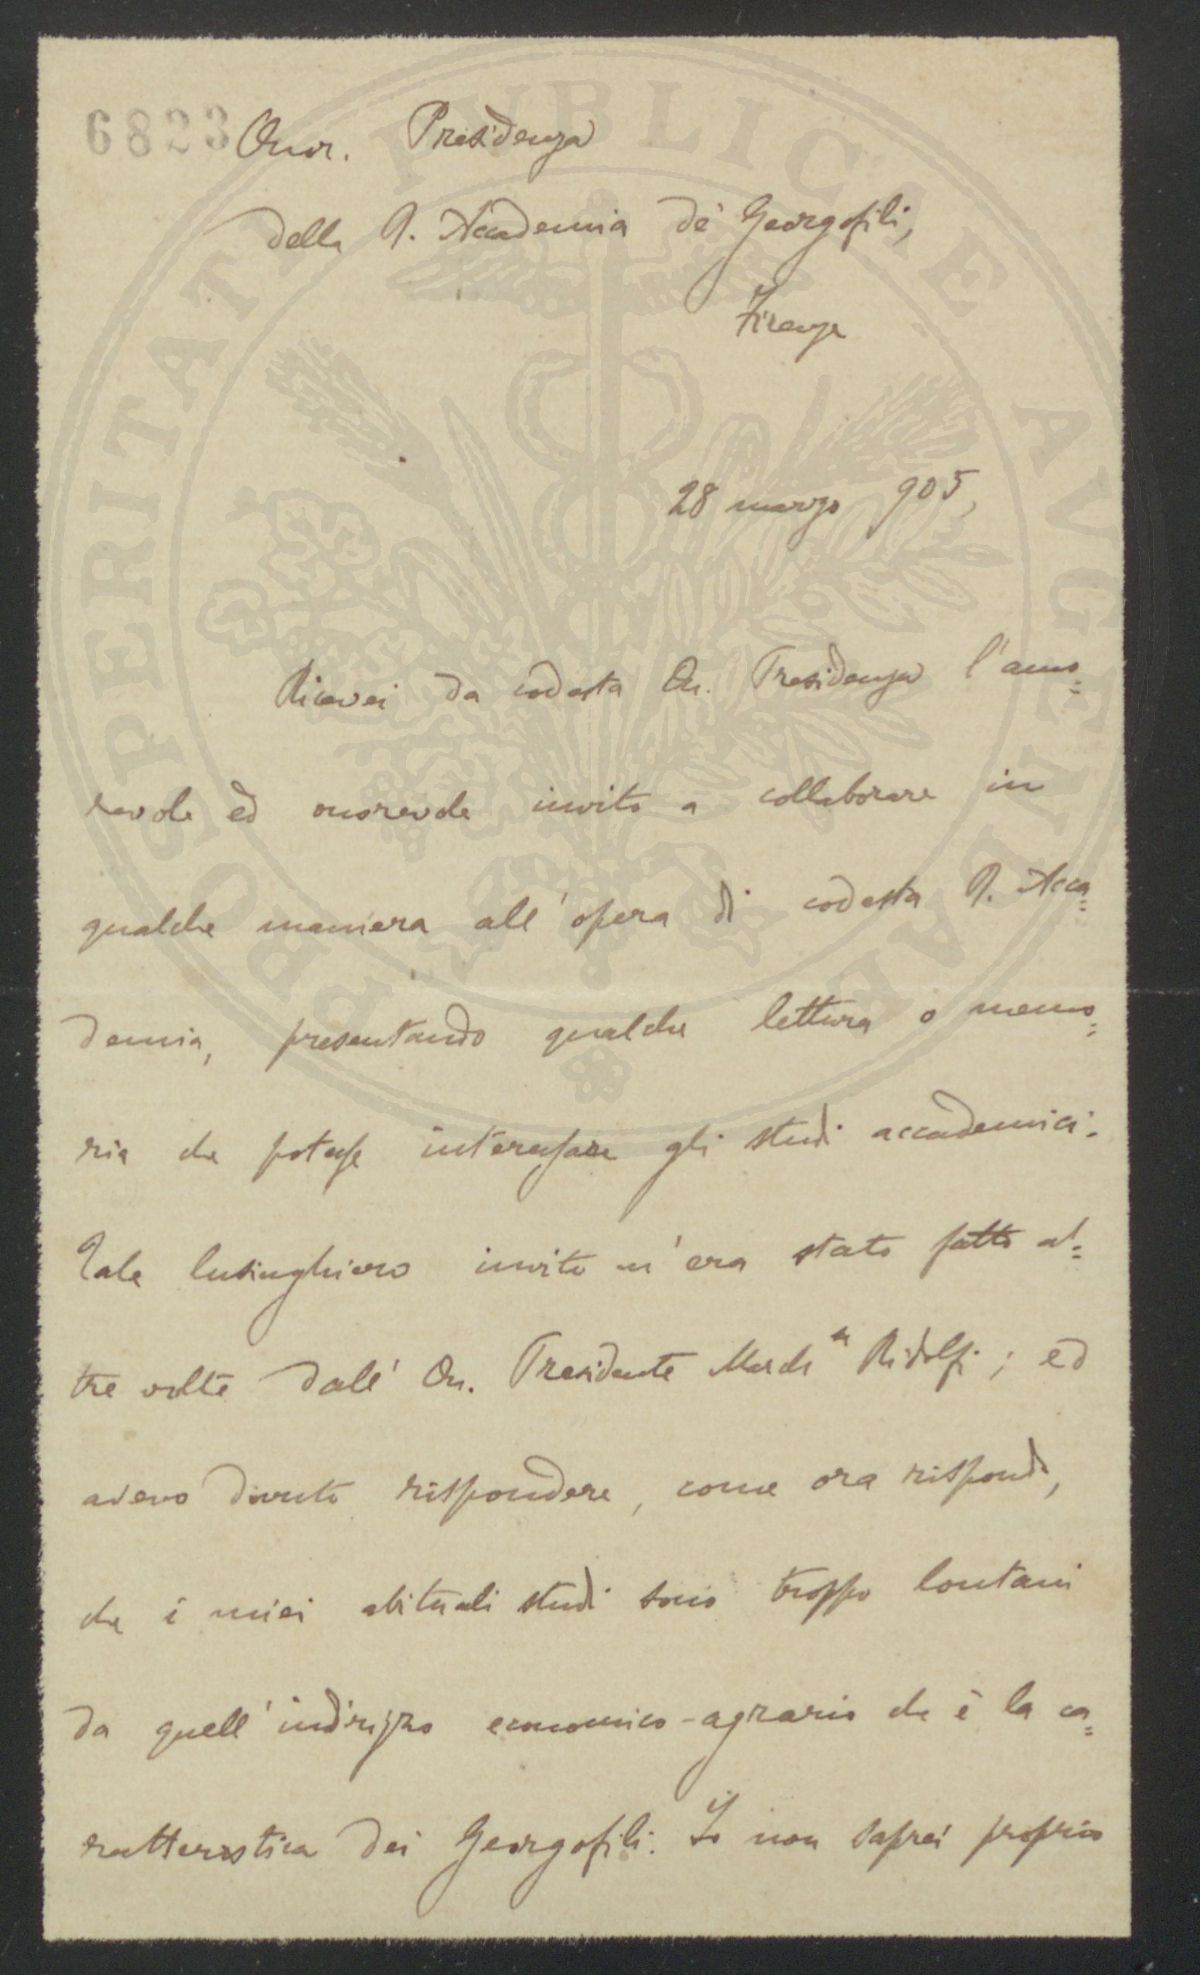 6823
Onor. Presidenza
della R. Accademia de' Georgofili,
Firenze
28 marzo 905,
Ricevei da codesta On. Presidenza l'amo=
revole ed onorevole invito a collaborare in
qualche maniera all'opera di codesta R. Acca=
demia, presentando qualche lettura o memo=
ria che potesse interessare gli studi accademici.
Tale lusinghiero invito m'era stato fatto al=
tre volte dall'On. Presidente March.se Ridolfi; ed
avevo dovuto rispondere, come ora rispondo,
che i miei abituali studi sono troppo lontani
da quell'indirizzo economico-agrario che è la ca=
ratteristica dei Georgofili. Io non saprei proprio
PROSPERITATI PVBLICAE AVGENDAE